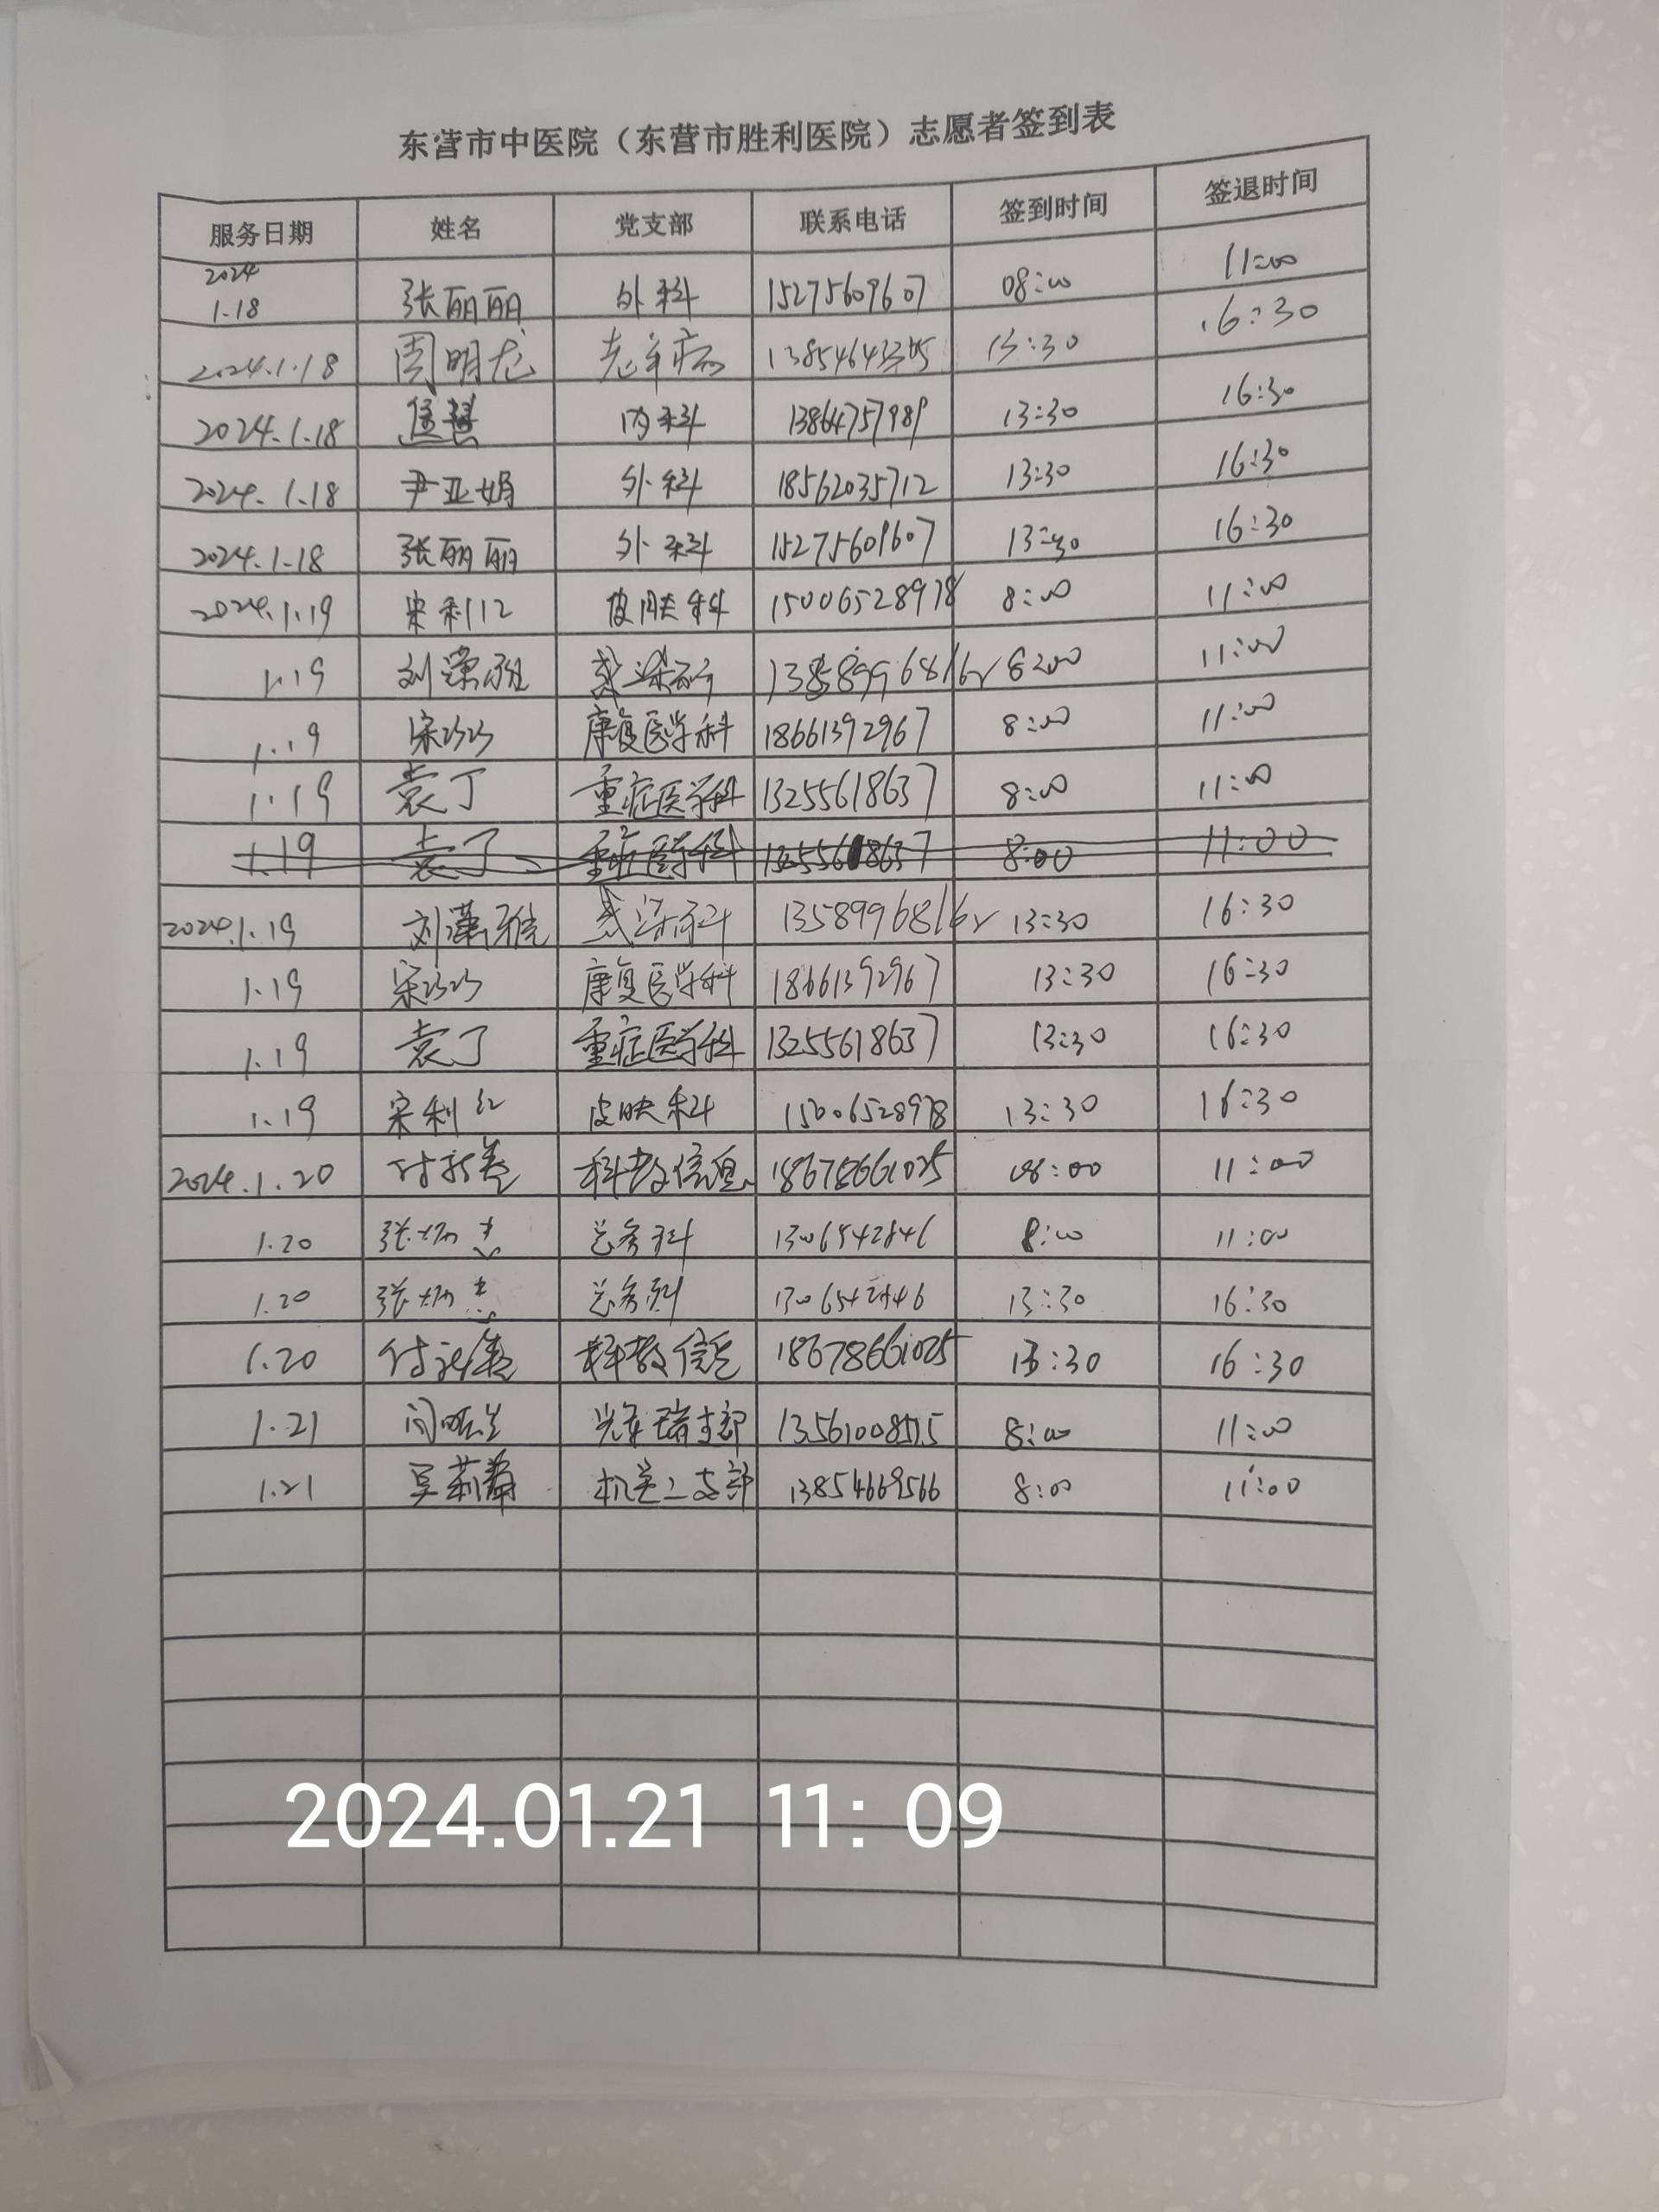 东营市中医院（东营市胜利医院）志愿者签到表
服务日期 姓名 党支部 联系电话 签到时间 签退时间
2024
1.18 张丽丽 外科 15275609607 08:00 11:00
2024.1.18 周明龙 老年病 16:30
2024.1.18 内科 13864757989 13:30 16:30
2024.1.18 尹亚娟 外科 18562035712 13:30 16:30
2024.1.18 张丽丽 外科 15275609607 13:30 16:30
2024.1.19 宋利红 皮肤科 15006528978 8:00 11:00
1.19 刘潇雅 感染科 8:00 11:00
1.19 宋珍珍 康复医学科 18661392967 8:00 11:00
1.19 袁丁 重症医学科 13255618637 8:00 11:00
1.19 袁丁 重症医学科 13255618637 8:00 11:00
2024.1.19 感染科 13:30 16:30
1.19 宋珍珍 康复医学科 18661392967 13:30 16:30
1.19 袁丁 重症医学科 13255618637 13:30 16:30
1.19 宋利红 皮肤科 15006528978 13:30 16:30
2024.1.20 科教信息 18678661025 08:00 11:00
1.20 总务科 1306542846 8:00 11:00
1.20 总务科 13:30 16:30
1.20 科教信息 18678661025 13:30 16:30
1.21 13561008515 8:00 11:00
1.21 吴莉 机关二支部 13854669566 8:00 11:00
2024.01.21 11:09